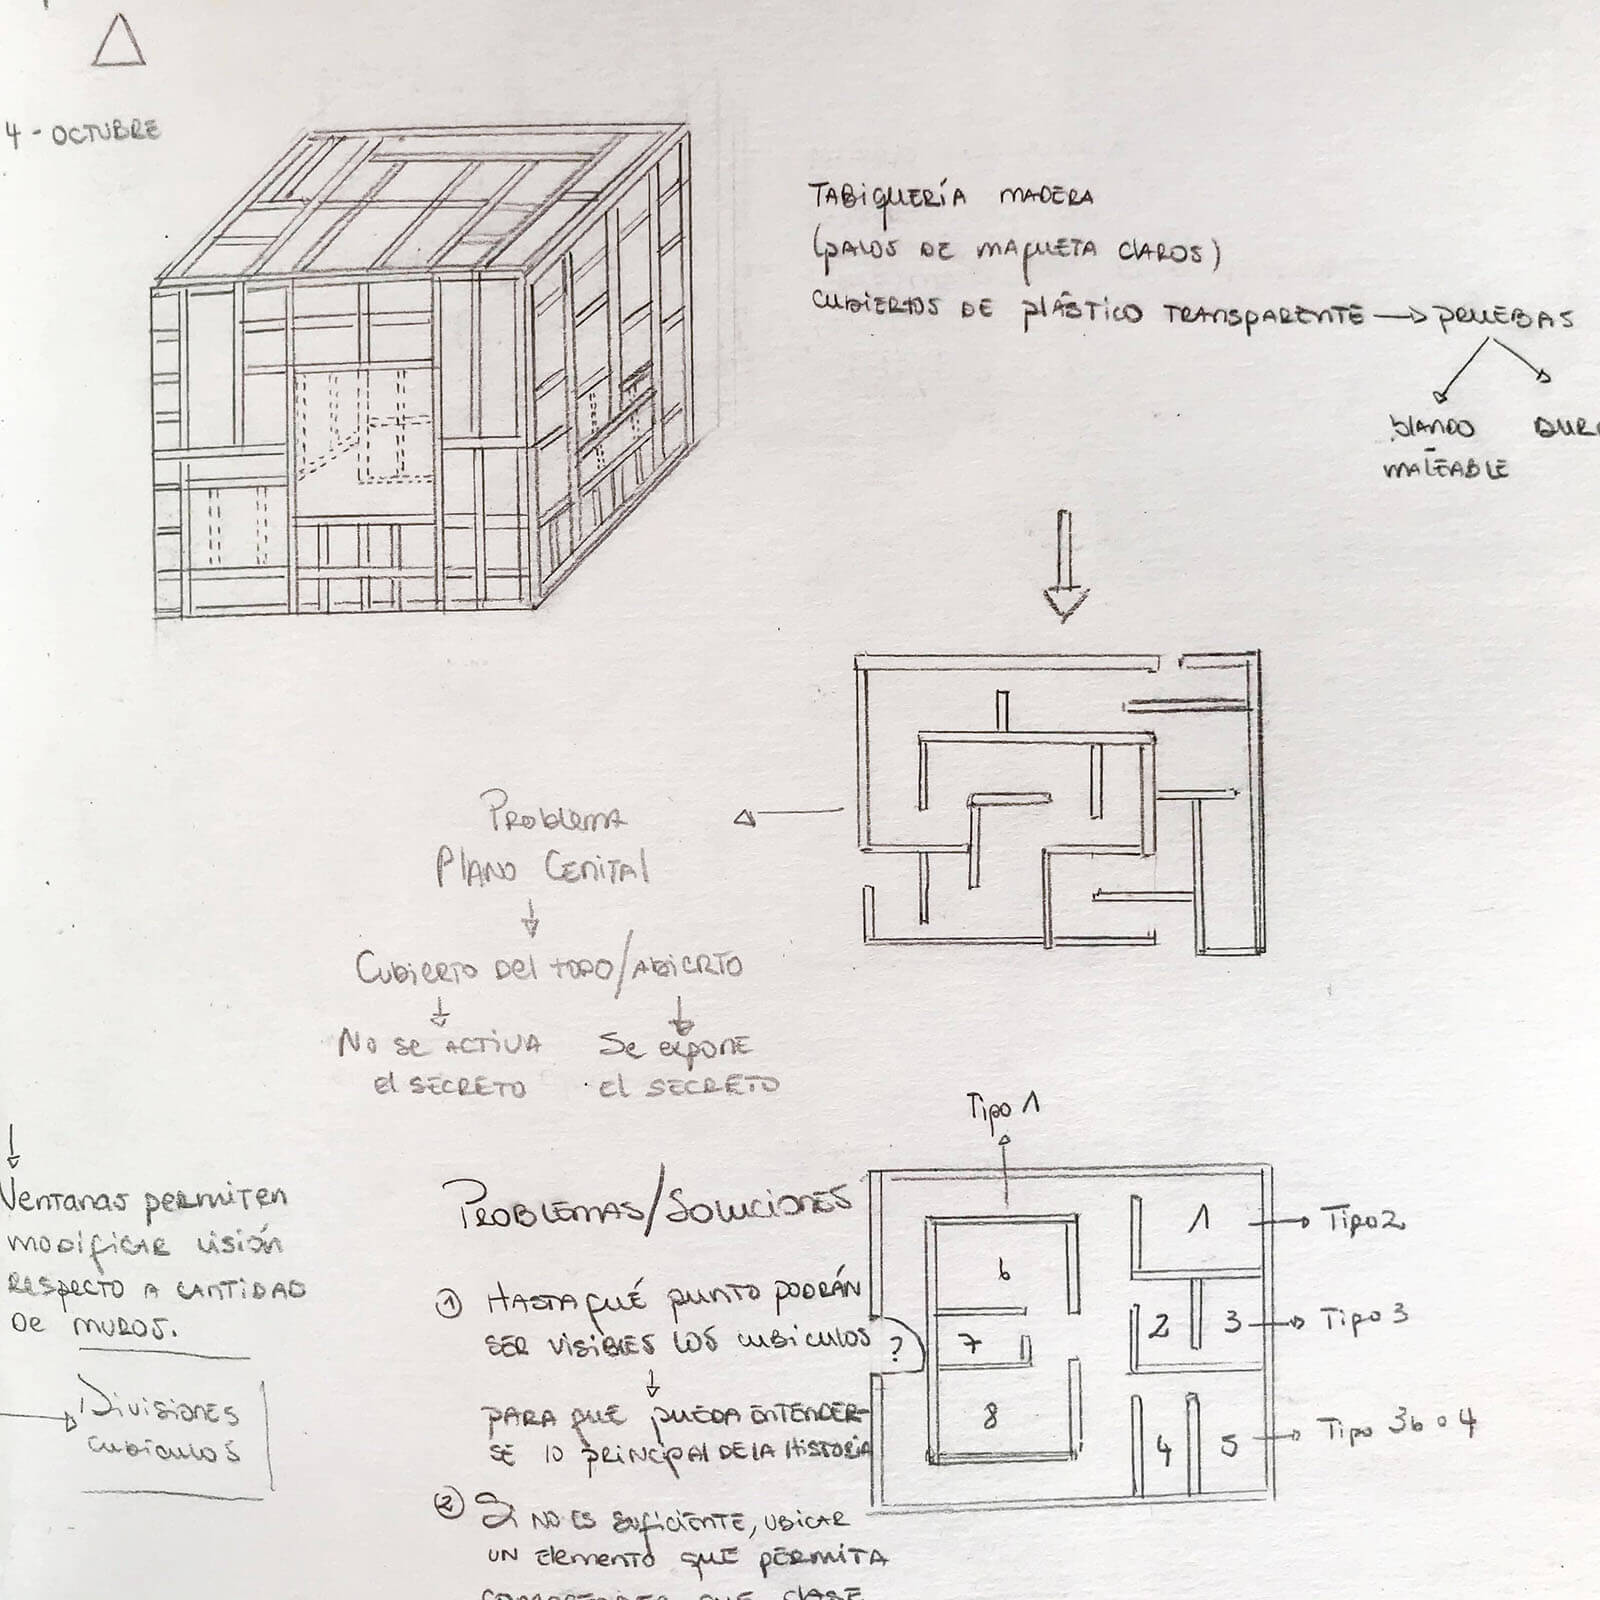 4 - OCTUBRE
TABIQUERÍA MADERA
(PALOS DE MAQUETA CLAROS)
CUBIERTOS DE PLÁSTICO TRANSPARENTE → PRUEBAS
BLANDO
MALEABLE
PROBLEMA
PLANO CENITAL
CUBIERTO DEL TODO/ABIERTO
NO SE ACTIVA
EL SECRETO
SE EXPONE
EL SECRETO
VENTANAS PERMITEN
MODIFICAR VISIÓN
RESPECTO A CANTIDAD
DE MUROS.
DIVISIONES
CUBICULOS
PROBLEMAS/SOLUCIONES
① HASTA QUÉ PUNTO PODRÁN
SER VISIBLES LOS CUBICULOS
PARA QUE PUEDA ENTENDER-
SE LO PRINCIPAL DE LA HISTORIA
② SI NO ES SUFICIENTE, UBICAR
UN ELEMENTO QUE PERMITA
Tipo 1
1 → Tipo 2
6
2
3 → Tipo 3
7
?
8
4
5 → Tipo 3b o 4